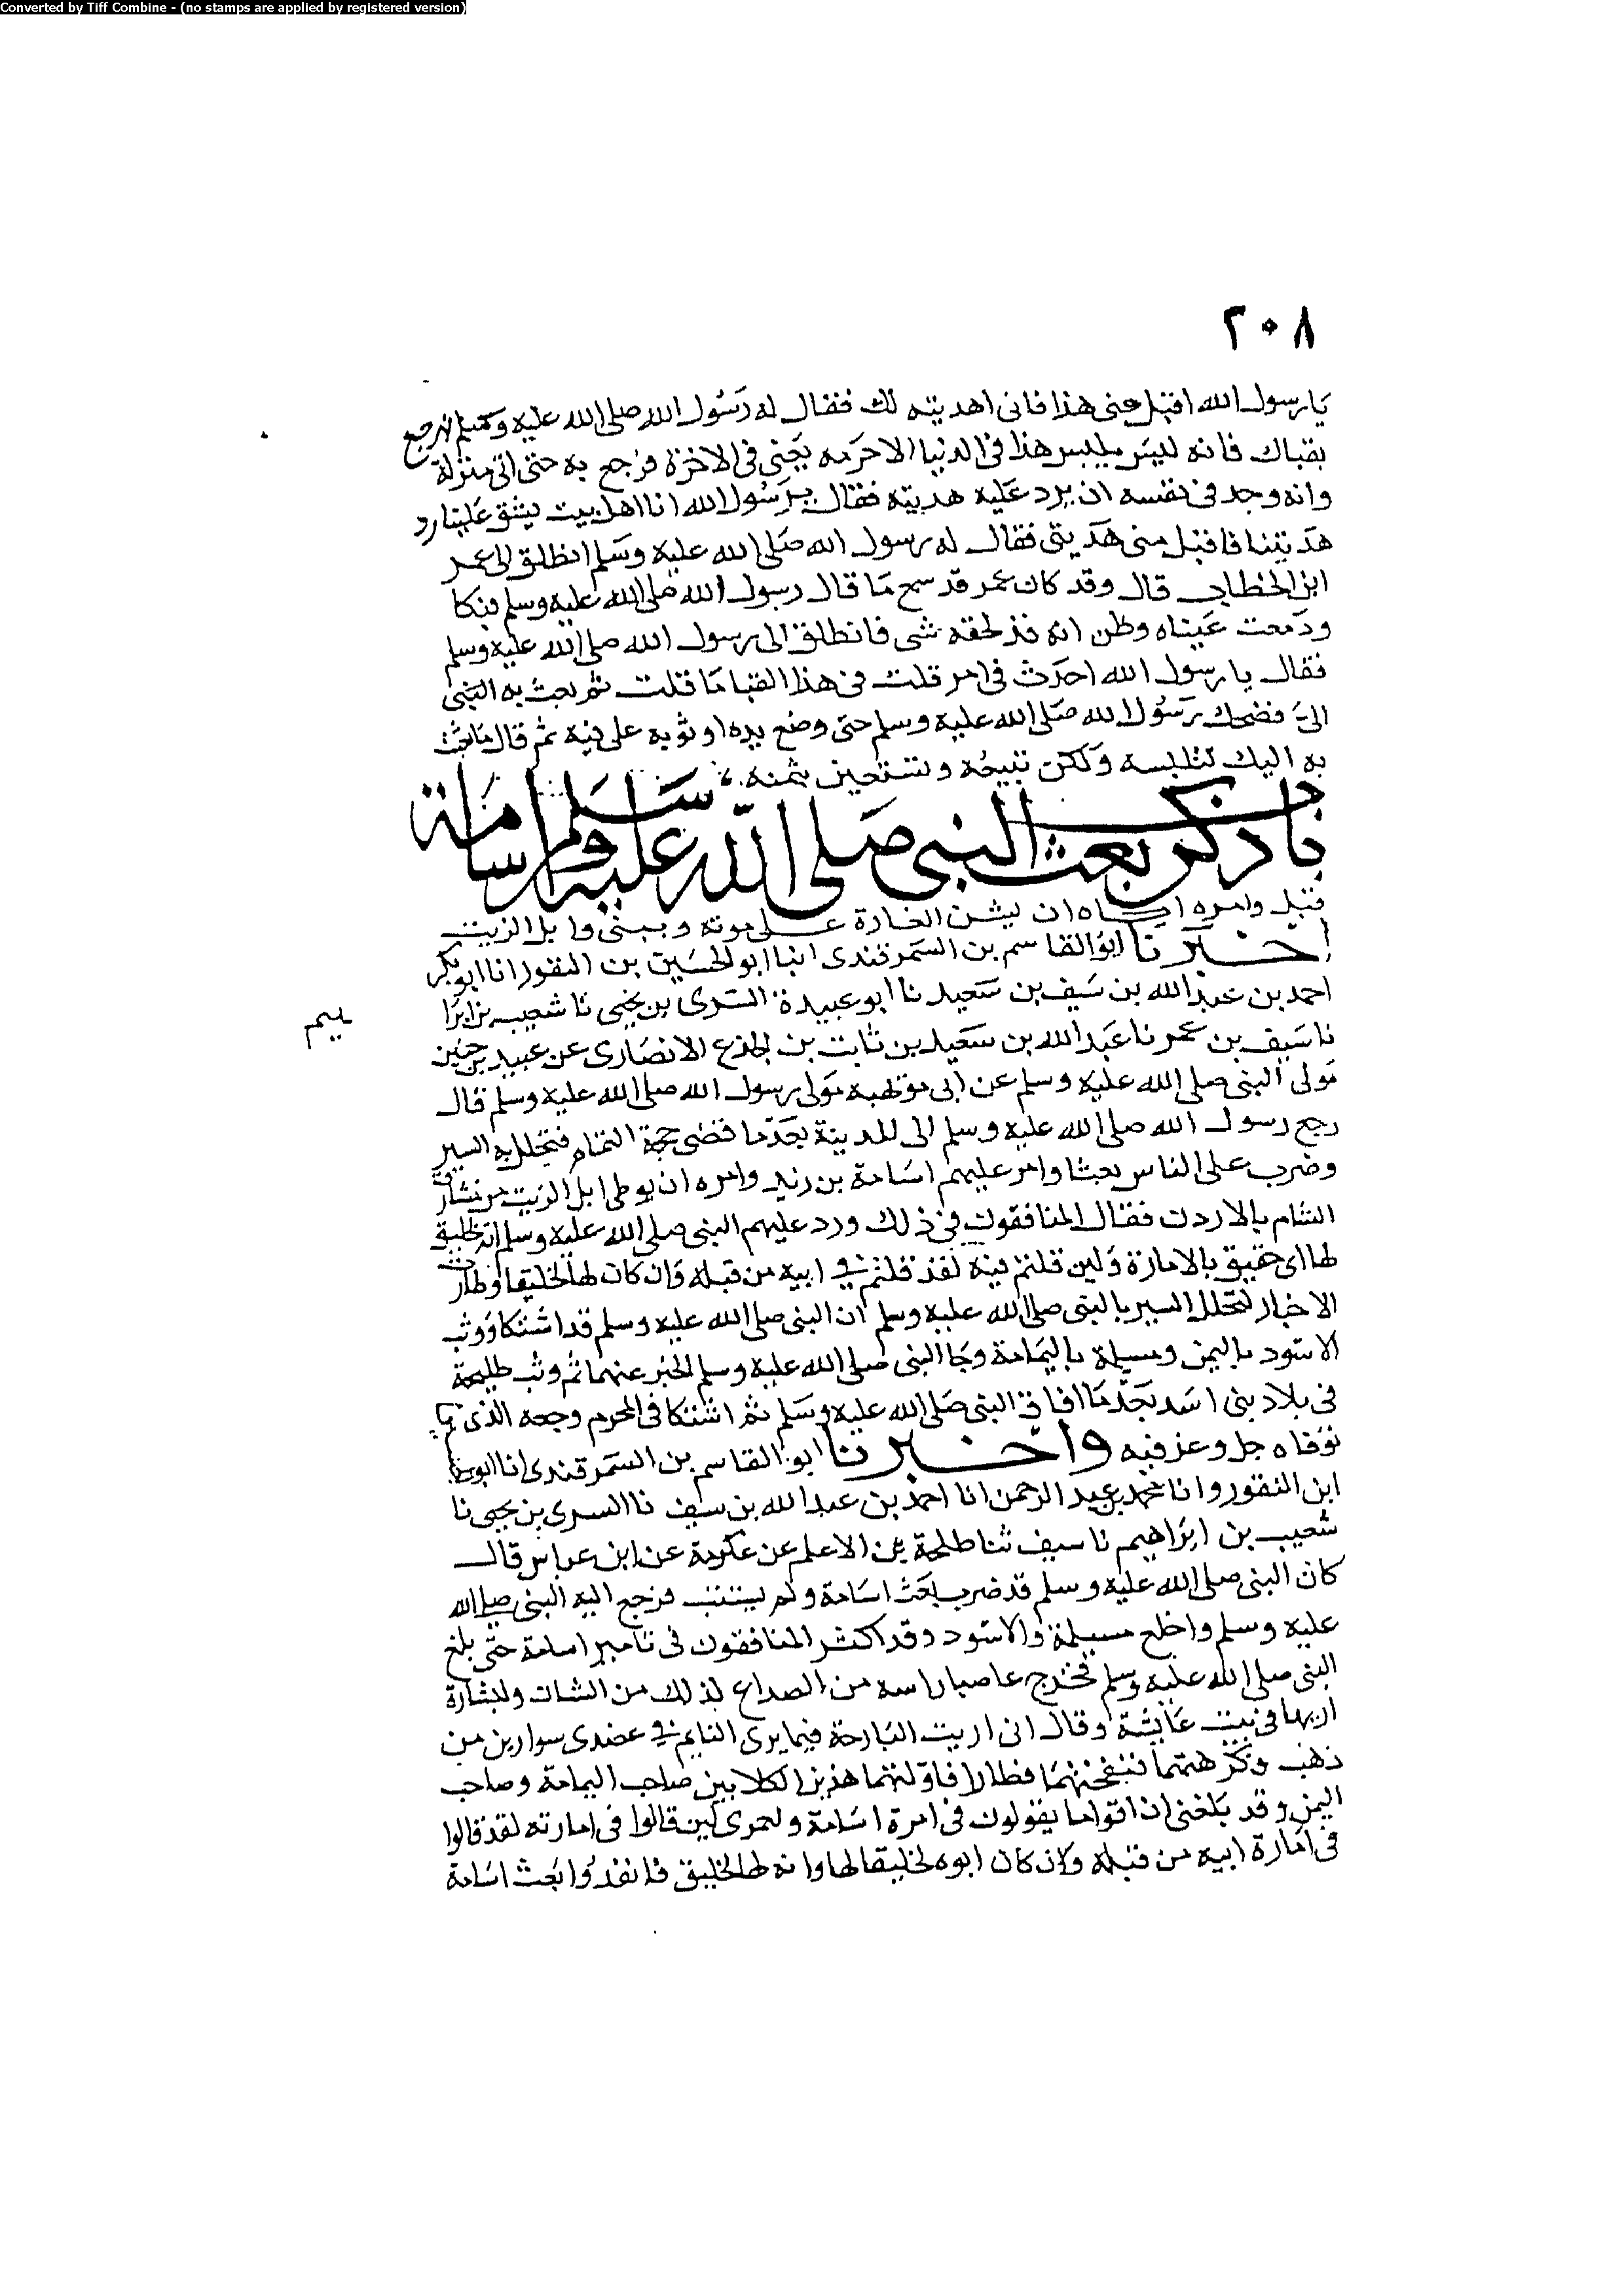 Converted by Tiff Combine - (no stamps are applied by registered version)
٢٠٨
يا رسول الله اقبل عنى هذا فانى اهديته لك فقال له رسول الله صلى الله عليه وسلم ارجع
بقباك فانه ليس يلبس هذا فى الدنيا الا حرمه يعنى فى الاخرة فرجع به حتى اتى منزلة
وانه وجد فى نفسه ان يرد عليه هديته فقال يرسول الله انا اهل بيت يشق علينا رد
هديتنا فاقبل منى هديتى فقال له رسول الله صلى الله عليه وسلم انطلق الى عمر
ابن الخطاب قال وقد كان عمر قد سمع ما قال رسول الله صلى الله عليه وسلم فبكا
ودمعت عيناه وظن انه قد لحقه شى فانطلق الى رسول الله صلى الله عليه وسلم
فقال يا رسول الله احدث فى امر قلت فى هذا القبا ما قلت ثم بعث به النبى
الىّ فضحك رسول الله صلى الله عليه وسلم حتى وضع يده او ثوبه على فيه ثم قال ما بعثت
به اليك لتلبسه ولكن تبيعه وتستعين بثمنه
باب ذكر بعث النبى صلى الله عليه وسلم اسامة
قبل وامره اياه ان يشن الغارة على موته ويبنى وابل الزيت
اخبرنا ابو القاسم بن السمرقندى انبا ابو الحسين بن النقور انا ابو بكر
احمد بن عبد الله بن سيف بن سعيد نا ابو عبيدة السرى بن يحيى نا شعيب بن ابرا
هيم
نا سيف بن عمر نا عبد الله بن سعيد بن ثابت بن الجذع الانصارى عن عبيد بن حنين
مولى النبى صلى الله عليه وسلم عن ابى مويهبه مولى رسول الله صلى الله عليه وسلم قال
رجع رسول الله صلى الله عليه وسلم الى المدينة بعد ما قضى حجة التمام فتحلل به السير
وضرب على الناس بعثا وامر عليهم اسامة بن زيد وامره ان يوطى ابل الزيت من مشارق
الشام بالاردن فقال المنافقون فى ذلك ورد عليهم النبى صلى الله عليه وسلم انه لخليق
لها اى حقيق بالامارة ولين قلتم فيه لقد قلتم فى ابيه من قبله وان كان لها لخليقا وطارت
الاخبار لتحلل السير بالنبى صلى الله عليه وسلم ان النبى صلى الله عليه وسلم قد اشتكا ووثب
الاسود باليمن ومسيلمة باليمامة وجا النبى صلى الله عليه وسلم الخبر عنهما ثم وثب طليحة
فى بلاد بنى اسد بعد ما افاق النبى صلى الله عليه وسلم ثم اشتكا فى المحرم وجعه الذى
توفاه جل وعز فيه واخبرنا ابو القاسم بن السمرقندى انا ابو
ابن النقور وانا محمد بن عبد الرحمن انا احمد بن عبد الله بن سيف نا السرى بن يحيى نا
شعيب بن ابراهيم نا سيف ثنا طلحة بن الاعلم عن عكرمة عن ابن عباس قال
كان النبى صلى الله عليه وسلم قد ضرب بعث اسامة ولم يستتب فرجع اليه النبى صلى الله
عليه وسلم واخلع مسيلمة والاسود وقد اكثر المنافقون فى تامير اسامة حتى بلغ
النبى صلى الله عليه وسلم فخرج عاصبا راسه من الصداع لذلك من الشان ولبشارة
اريها فى بيت عايشة وقال انى اريت البارحة فيما يرى النايم فى عضدى سوارين من
ذهب وكرهتهما فنفختهما فطارا فاولتهما هذين الكلابين صاحب اليمامة وصاحب
اليمن وقد بلغنى ان اقواما يقولون فى امرة اسامة ولعمرى لين قالوا فى امارته لقد قالوا
فى امارة ابيه من قبله وان كان ابوه لخليقا لها وانه لها لخليق فانفذوا بعث اسامة